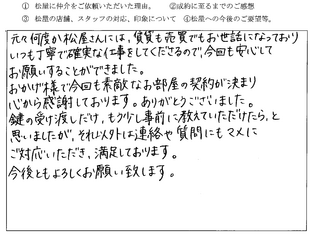 ① 松屋に仲介をご依頼いただいた理由。　②成約に至るまでのご感想
③ 松屋の店舗、スタッフの対応、印象について　④松屋への今後のご要望等。
元々何度か松屋さんには、賃貸も売買でもお世話になっており
いつも丁寧で確実な仕事をしてくださるので、今回も安心して
お願いすることができました。
おかげ様で今回も素敵なお部屋の契約が決まり
心から感謝しております。ありがとうございました。
鍵の受け渡しだけ、もう少し事前に教えていただけたら、と
思いましたが、それ以外はご連絡や質問にもマメに
ご対応いただき、満足しております。
今後ともよろしくお願い致します。